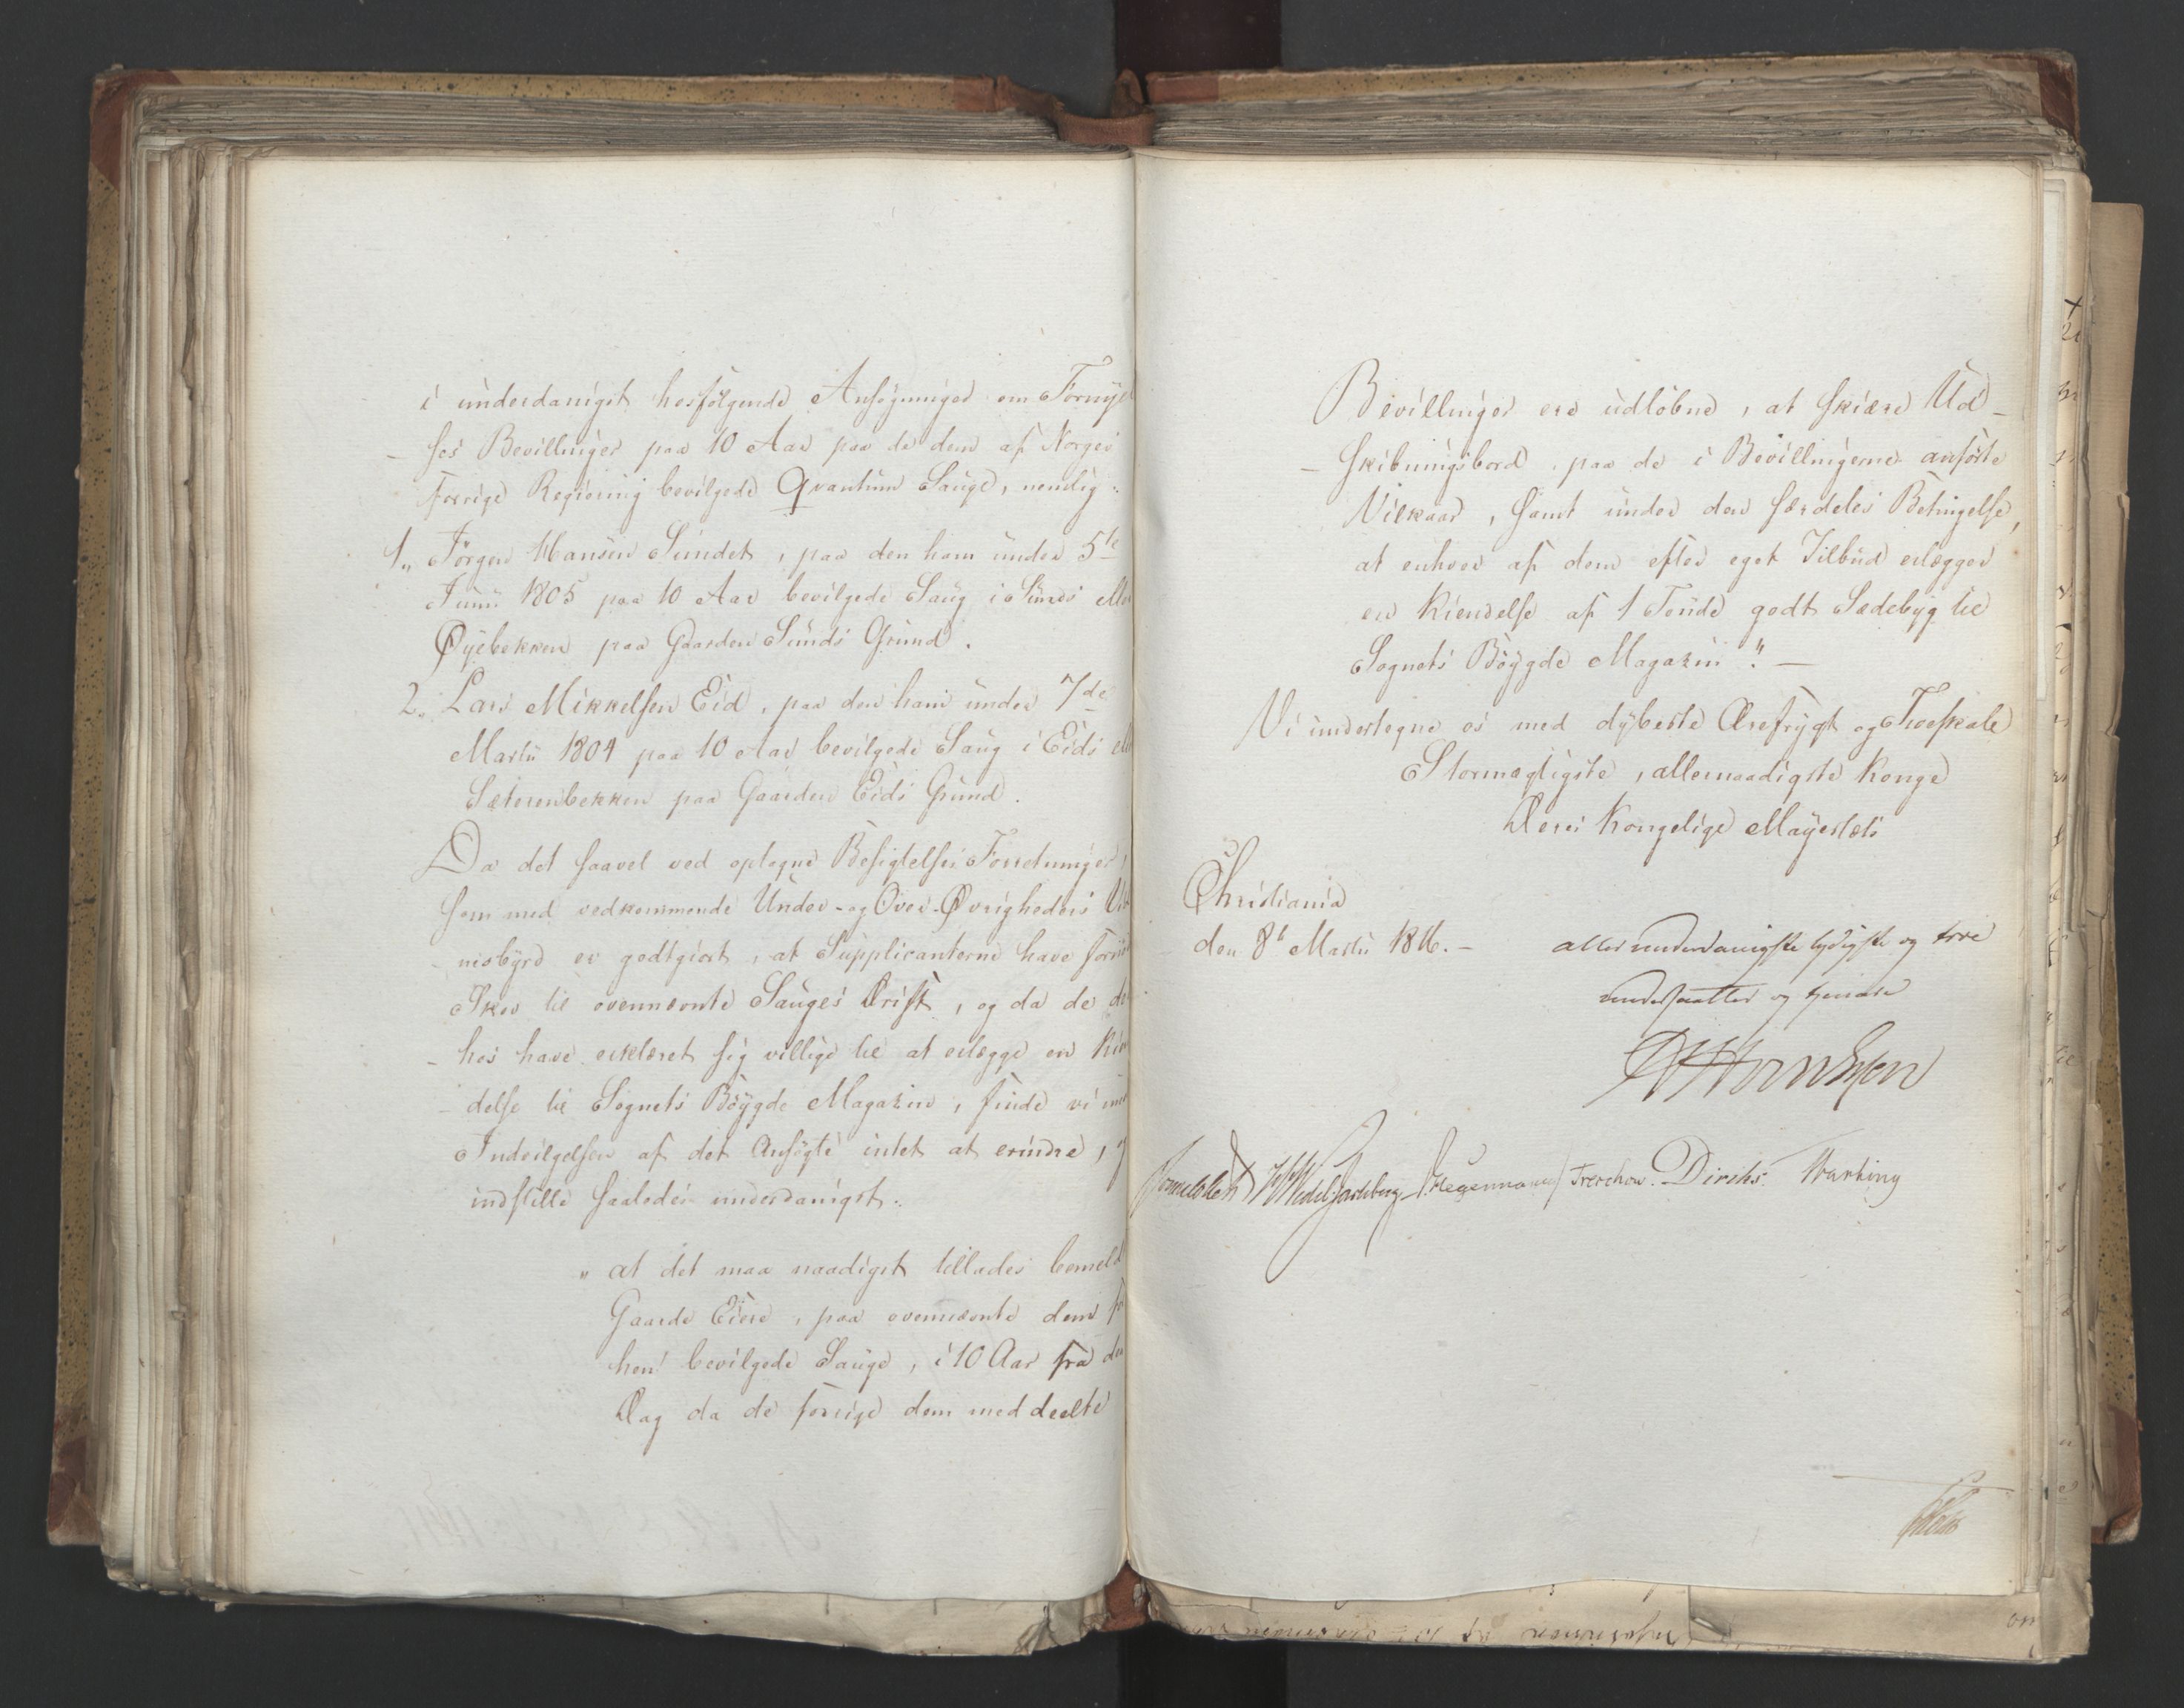 i underdanigst hosfölgende Ansögninger om Fornyel
- ses Bevillinger paa 10 Aar paa de dem af Norges
forrige Regiering bevilgede Qvantum Sauge, nemlig:
1„ Jörgen Hansen Sundet, paa den ham under 5te
Junii 1805 paa 10 Aar bevilgede Saug i Sunds eller
Øyebekken paa Gaarden Sunds Grund.
2. Lars Mikkelsen Eid, paa den ham under 7de
Martii 1804 paa 10 Aar bevilgede Saug i Eids el
Sæterenbekken paa Gaarden Eids Grund.
Da det saavel ved optagne Besigtelses Forretninger,
som med vedkommende Under- og Over-Øvrigheders Vid
- nisbyrd er godtgiort, at Supplicanterne have forn
Skov til ovennævnte Sauges Drift, og da de de
- hos have erklæret sig villige til at erlægge en Kien
- delse til Sognets Böygde Magazin, finde vi imod
Indvilgelsen af det Ansögte intet at erindre, og
indstille saaledes underdanigst:
„ at det maa naadigst tillades bemeld
Gaarde Eiere, paa ovennævnte dem for
hen bevilgede Sauge, i 10 Aar fra den
Dag da de forrige dem meddeelte
Bevillinger ere udløbne, at skiære Ud-
- skibningsbord paa de i Bevillingerne anførte
Vilkaar, samt under den særdeles Betingelse,
at enhver af dem efter eget Tilbud erlægger
en Kiendelse af 1 Tønde godt Sædebyg til
Sognets Böygde Magazin". —
Vi undertegne os med dybeste Ærefrygt og Troeskab
Stormægtigste, allernaadigste Konge
Deres Kongelige Mayestæts
Christiania
den 8de Martii 1816. -
allerunderdanigste lydigste og troe
undersaatter og tjenere
Sommerhielm HWedel Jarlsberg D. Hegermann Treschow. Diriks. Krohg